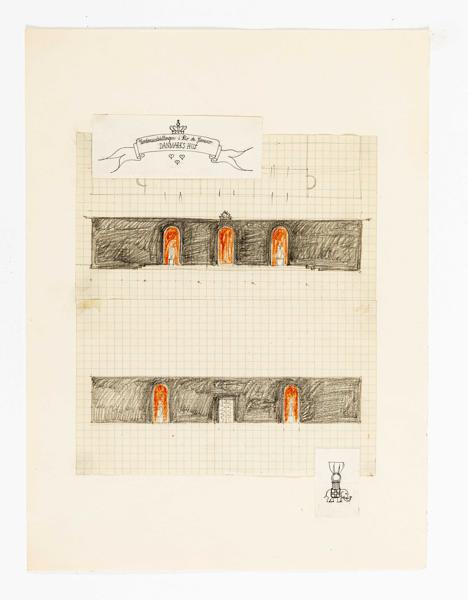 Verdensudstillingen i Rio de Janeiro
DANMARKS HUS